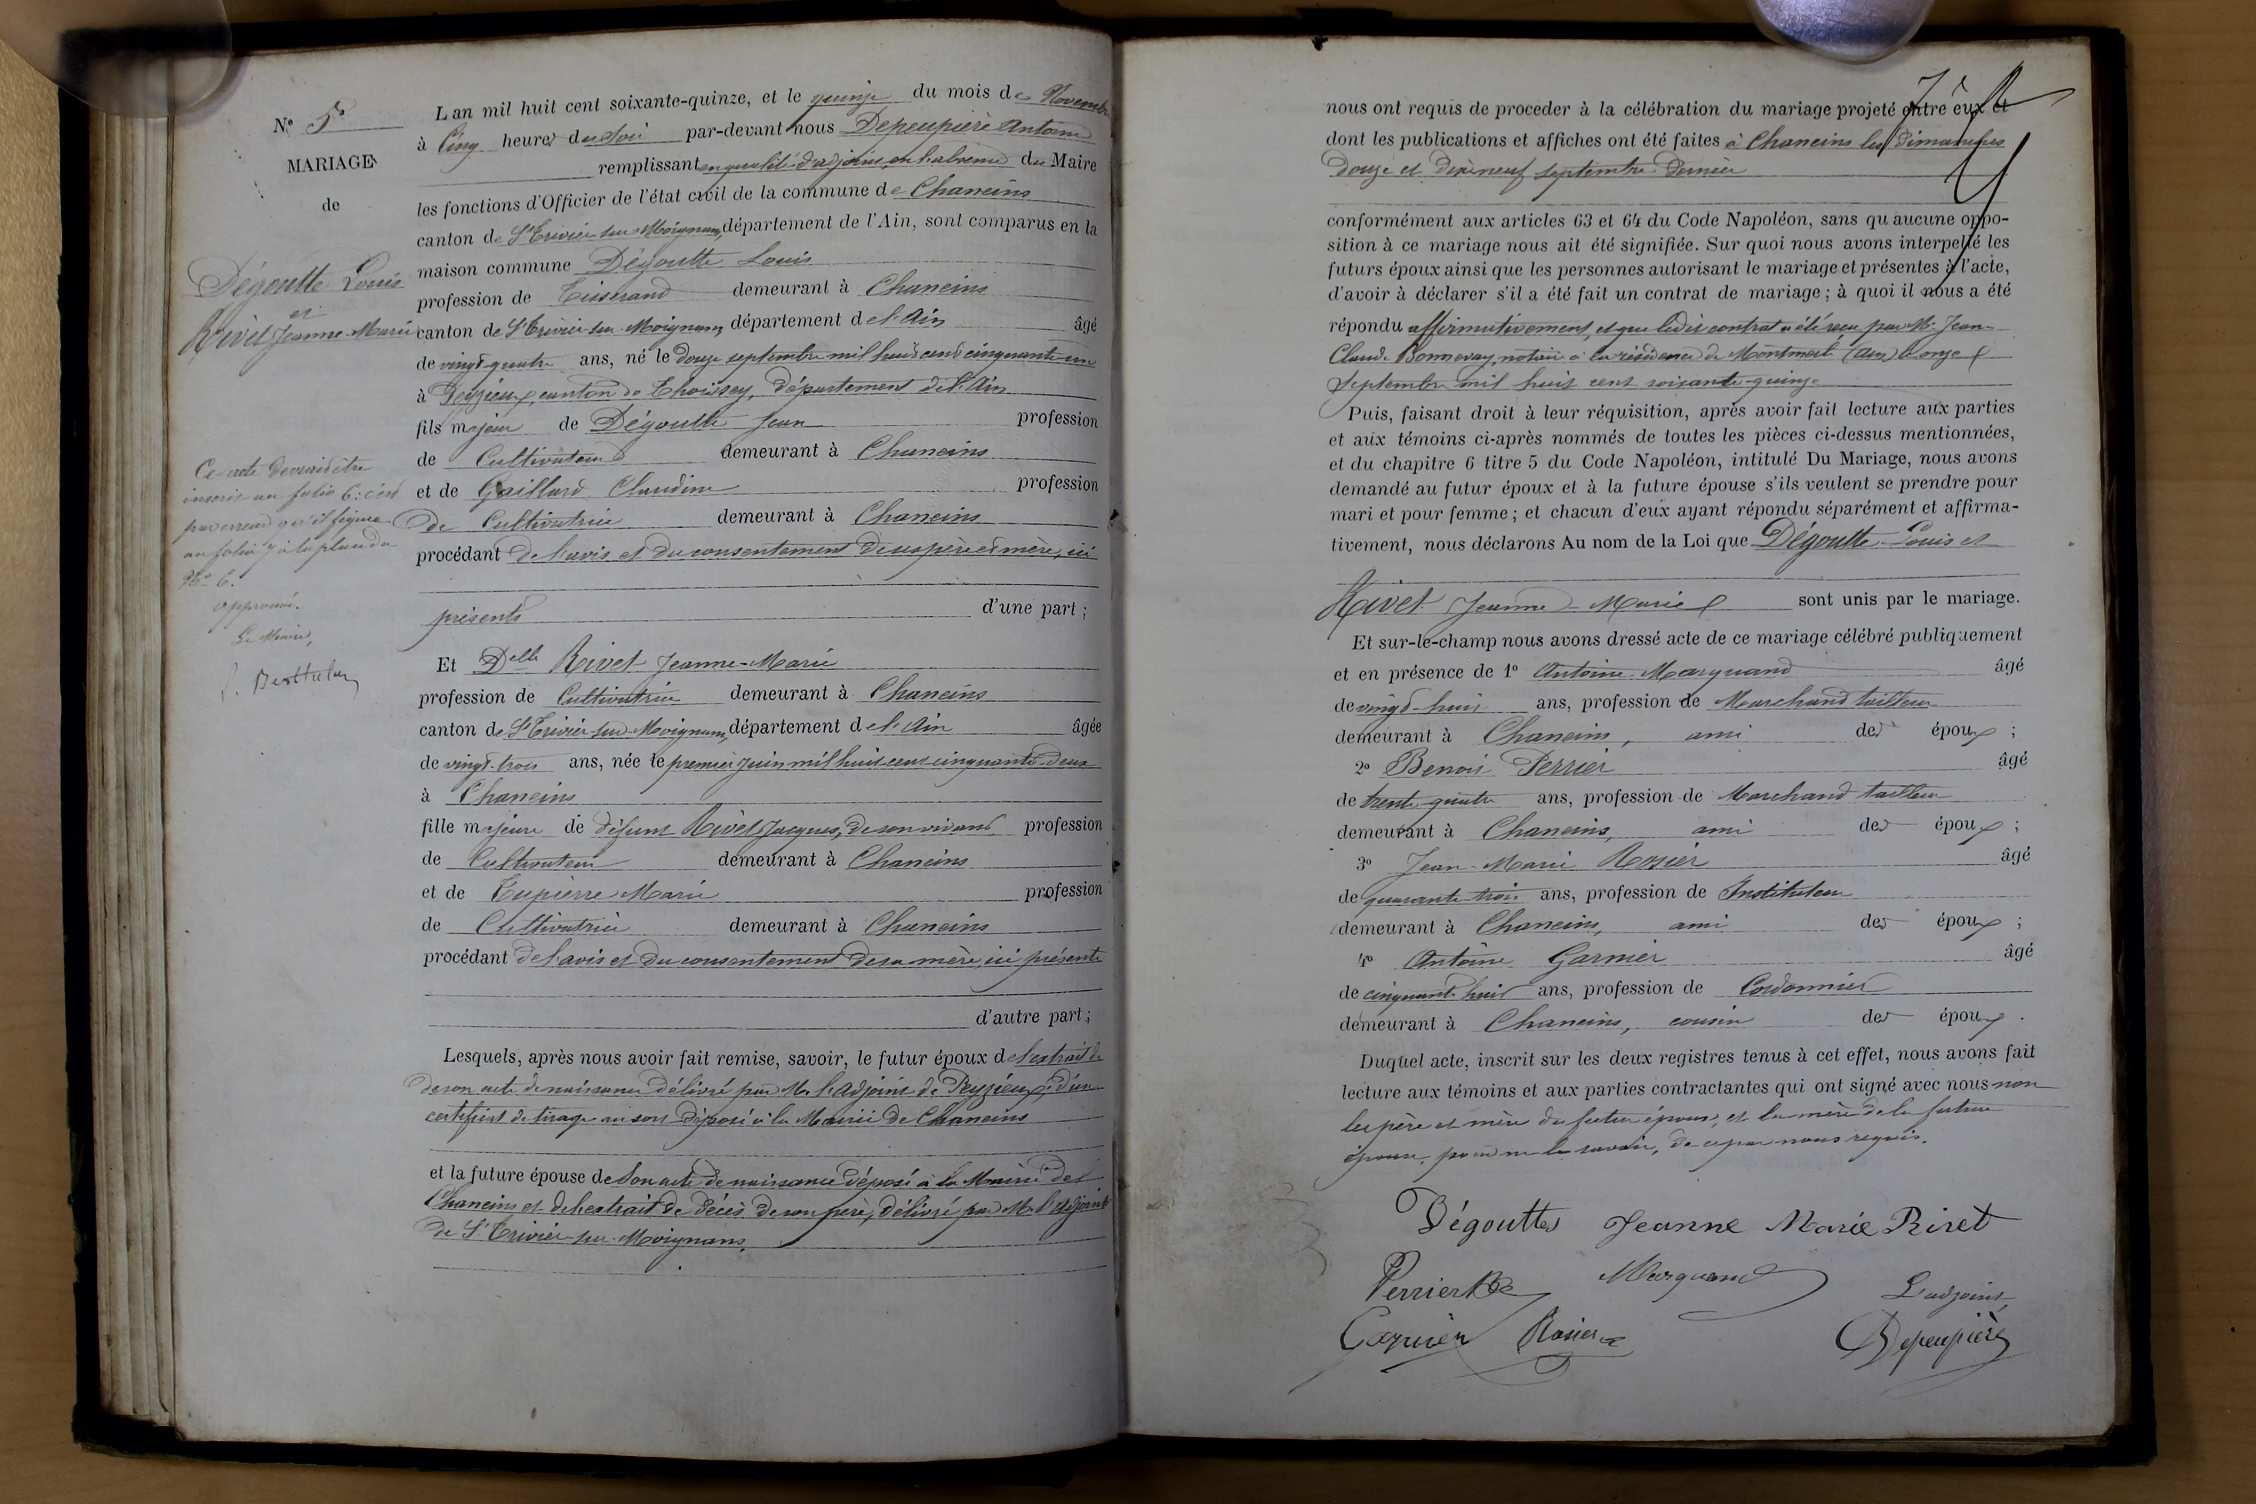 N° 5
MARIAGE
de
Dégoutte Louis
et
Rivet Jeanne-Marie
Ce acte devrait être
inscrit au folio 6: c'est
par erreur qu'il figure
au folio 7 à la place du
N° 6.
approuvé.
Le Maire,
Lan mil huit cent soixante-quinze, et le quinze du mois de Novembre
à Cinq heures du Soir par-devant nous Depeupière Antoine
remplissant en qualité d'adjoint, en l'absence du Maire
les fonctions d'Officier de l'état civil de la commune de Chaneins
canton de St Trivier-sur-Moignans, département de l'Ain, sont comparus en la
maison commune Dégoutte Louis
profession de Tisserand demeurant à Chaneins
canton de St Trivier-sur-Moignans, département de l'Ain âgé
de vingt-quatre ans, né le douze septembre mil huit cent cinquante-un
à Peyzieux, canton de Thoissey, département de l'Ain
fils majeur de Dégoutte Jean profession
de Cultivateur demeurant à Chaneins
et de Gaillard Claudine profession
de Cultivatrice demeurant à Chaneins
procédant de l'avis et du consentement de ses père et mère, ici
présents d'une part;
Et Delle Rivet Jeanne-Marie
profession de Cultivatrice demeurant à Chaneins
canton de St Trivier-sur-Moignans, département de l'Ain âgée
de vingt-trois ans, née le premier juin mil huit cent cinquante-deux
à Chaneins
fille majeure de défunt Rivet Jacques, de son vivant profession
de Cultivateur demeurant à Chaneins
et de Tupierre Marie profession
de Cultivatrice demeurant à Chaneins
procédant de l'avis et du consentement de sa mère, ici présente
d'autre part;
Lesquels, après nous avoir fait remise, savoir, le futur époux de l'extrait de
de son acte de naissance délivré par Mr l'adjoint de Peyzieux, et d'un
certificat de tirage au sort déposé à la Mairie de Chaneins
et la future épouse de son acte de naissance déposé à la Mairie de
Chaneins et de l'extrait de décès de son père, délivré par Mr l'adjoint
de St Trivier-sur-Moignans.
nous ont requis de proceder à la célébration du mariage projeté entre eux et
dont les publications et affiches ont été faites à Chaneins les Dimanches
Douze et Dix-neuf septembre dernier
conformément aux articles 63 et 64 du Code Napoléon, sans qu'aucune oppo-
sition à ce mariage nous ait été signifiée. Sur quoi nous avons interpellé les
futurs époux ainsi que les personnes autorisant le mariage et présentes à l'acte,
d'avoir à déclarer s'il a été fait un contrat de mariage; à quoi il nous a été
répondu affirmativement, et que ledit contrat a été reçu par Mr Jean-
Claude Bonnevay, notaire à la résidence de Montmerle (Ain) le onze
Septembre mil huit cent soixante-quinze
Puis, faisant droit à leur réquisition, après avoir fait lecture aux parties
et aux témoins ci-après nommés de toutes les pièces ci-dessus mentionnées,
et du chapitre 6 titre 5 du Code Napoléon, intitulé Du Mariage, nous avons
demandé au futur époux et à la future épouse s'ils veulent se prendre pour
mari et pour femme; et chacun d'eux ayant répondu séparément et affirma-
tivement, nous déclarons Au nom de la Loi que Dégoutte Louis et
Rivet Jeanne-Marie sont unis par le mariage.
Et sur-le-champ nous avons dressé acte de ce mariage célébré publiquement
et en présence de 1° Antoine Marquand âgé
de vingt-huit ans, profession de Marchand tailleur
demeurant à Chaneins, ami des époux;
2° Benoit Perrier âgé
de trente-quatre ans, profession de Marchand tailleur
demeurant à Chaneins, ami des époux;
3° Jean-Marie Rosier âgé
de quarante-trois ans, profession de Instituteur
demeurant à Chaneins, ami des époux;
4° Antoine Garnier âgé
de cinquante-huit ans, profession de Cordonnier
demeurant à Chaneins, cousin des époux.
Duquel acte, inscrit sur les deux registres tenus à cet effet, nous avons fait
lecture aux témoins et aux parties contractantes qui ont signé avec nous non
les père et mère du futur époux, et la mère de la future
épouse, pour ne le savoir, de ce par nous requis.
Dégoutte Jeanne Marie Rivet
Perrier Marquand L'adjoint,
Garnier Rosier Depeupière